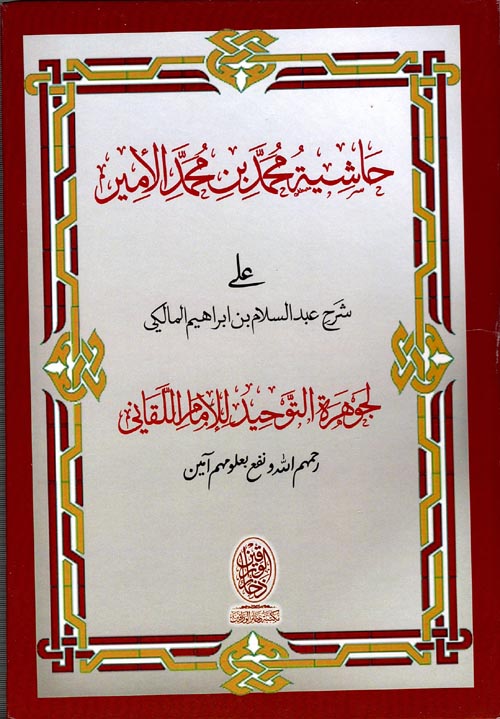 حاشية محمد بن محمد الأمير
على
شرح عبد السلام بن ابراهيم المالكي
لجوهرة التوحيد للإمام اللقاني
رحمهم الله ونفع بعلومهم آمين